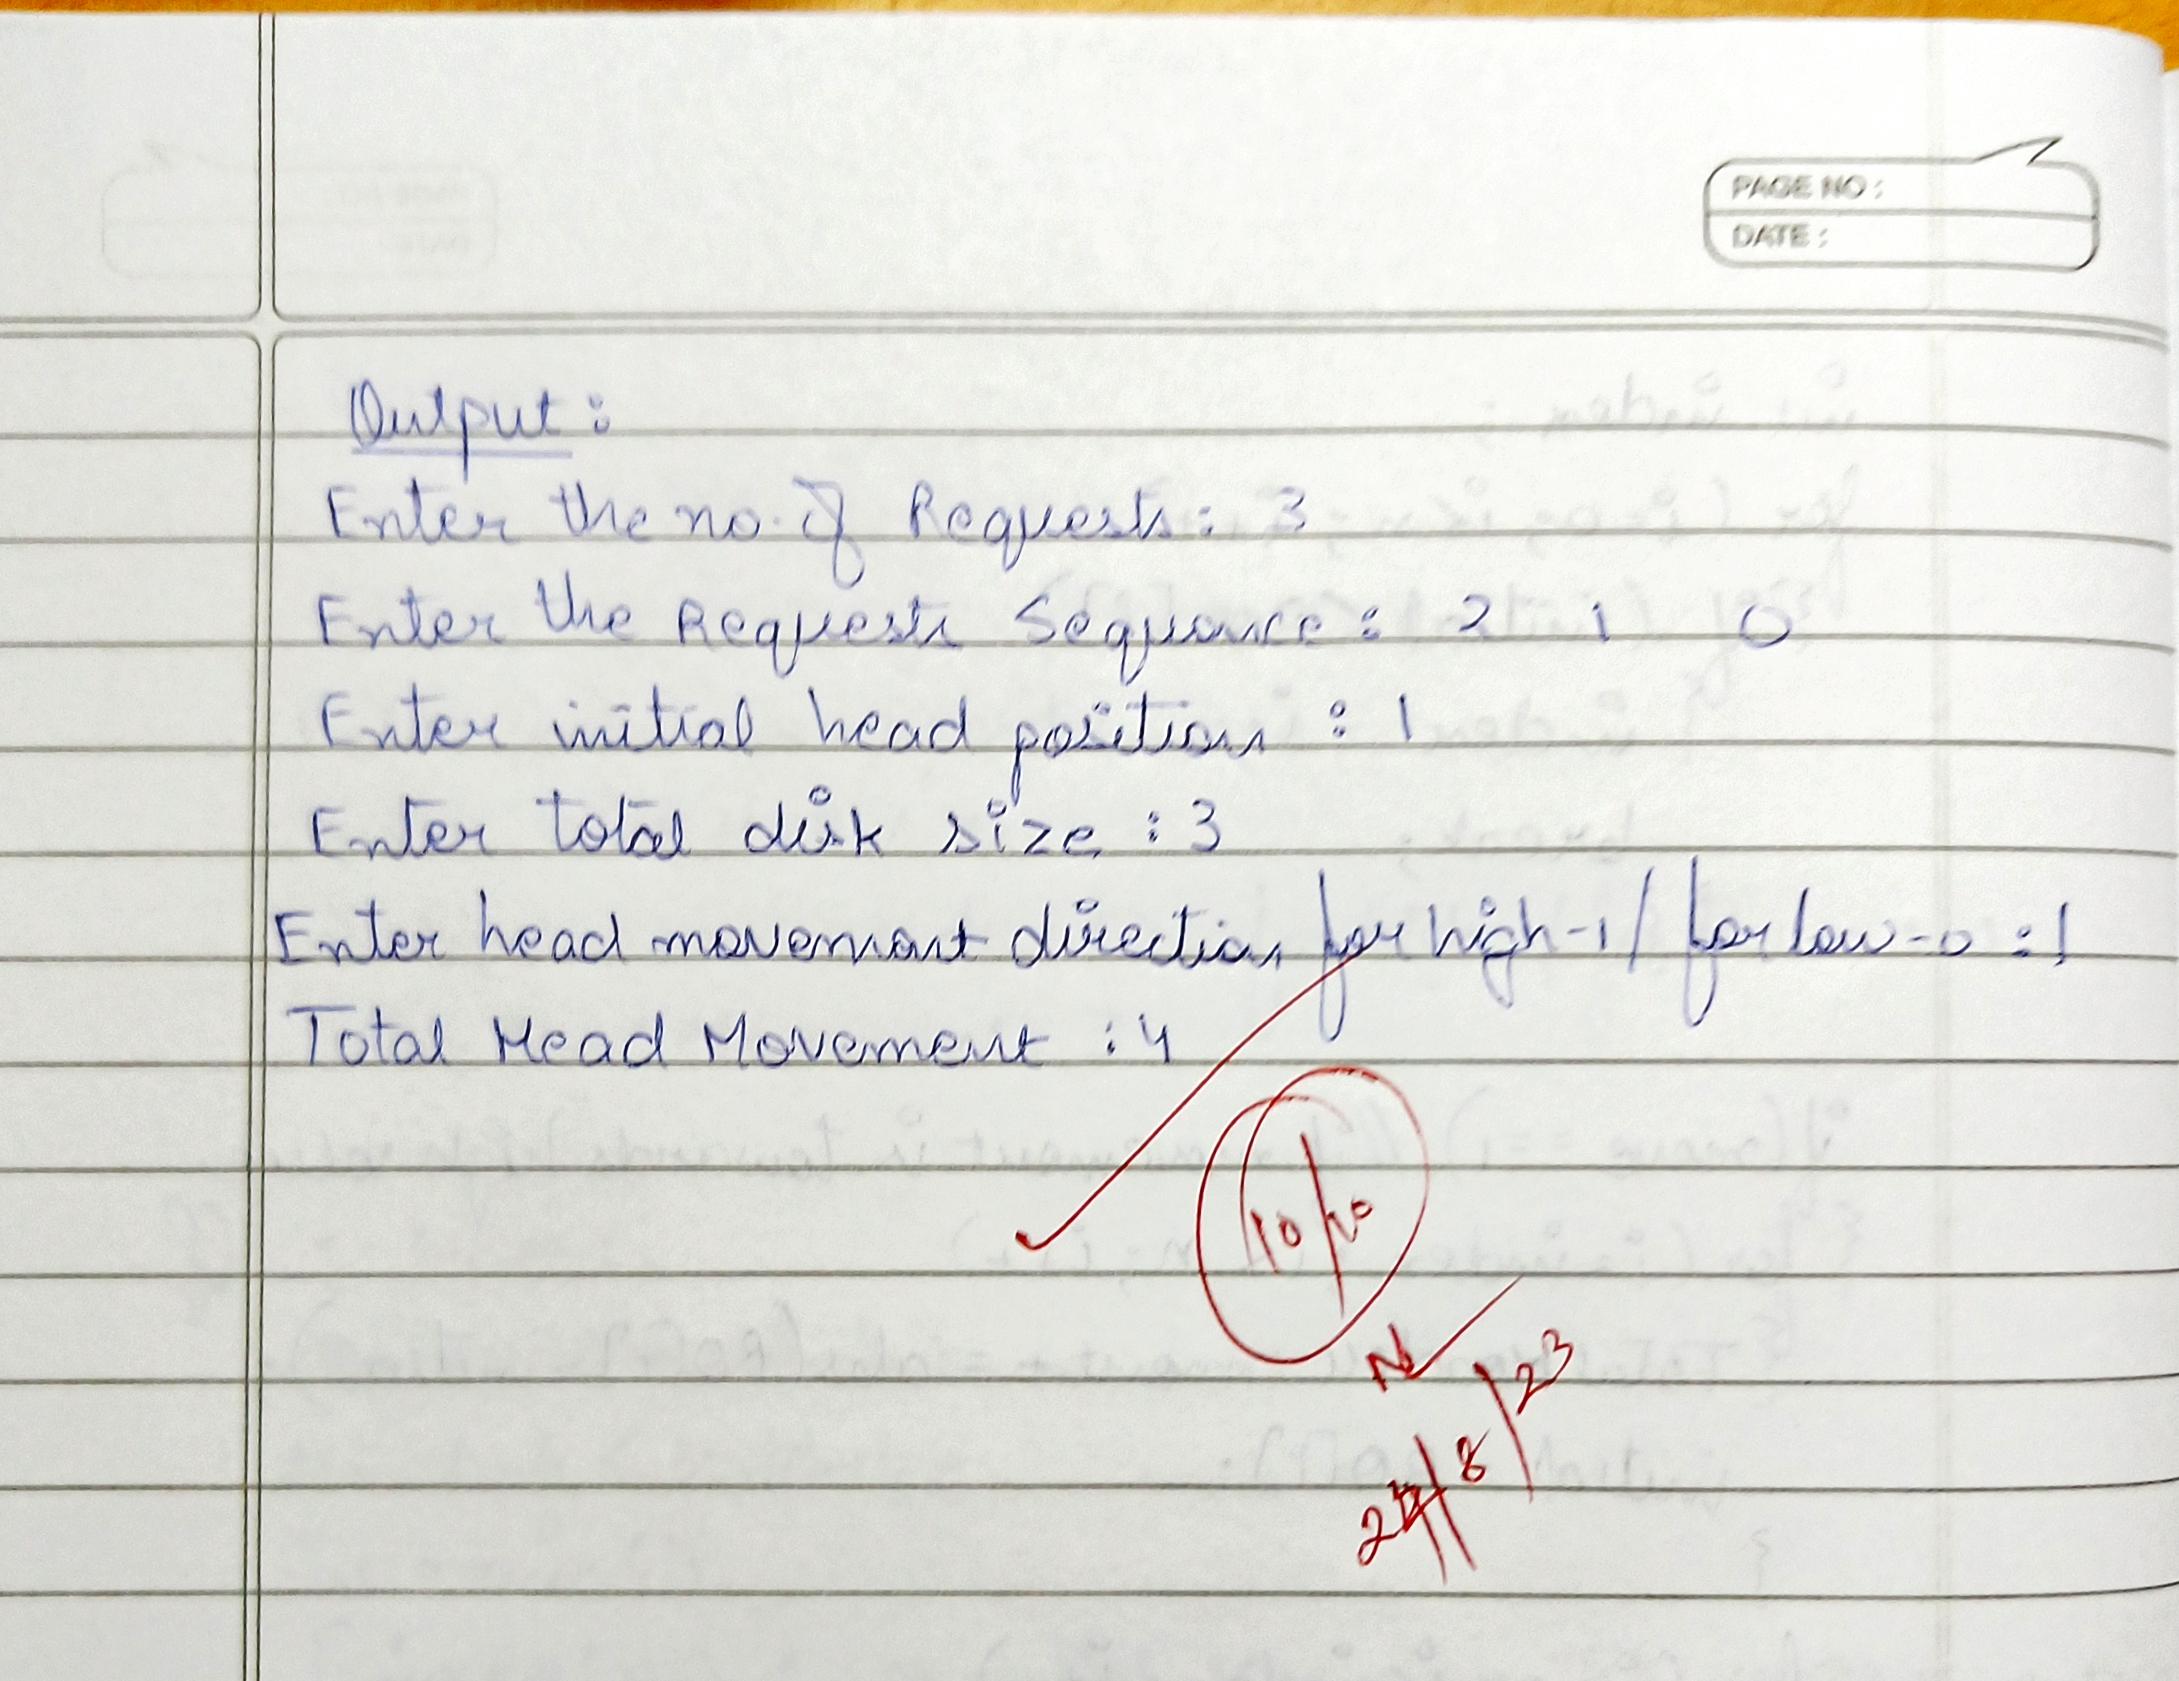 PAGE NO :
DATE :
Output :
Enter the no. of Requests : 3
Enter the Requests Sequence : 2 1 0
Enter initial head position : 1
Enter total disk size : 3
Enter head movement direction for high-1/ for low-0 : 1
Total Head Movement : 4
10/10